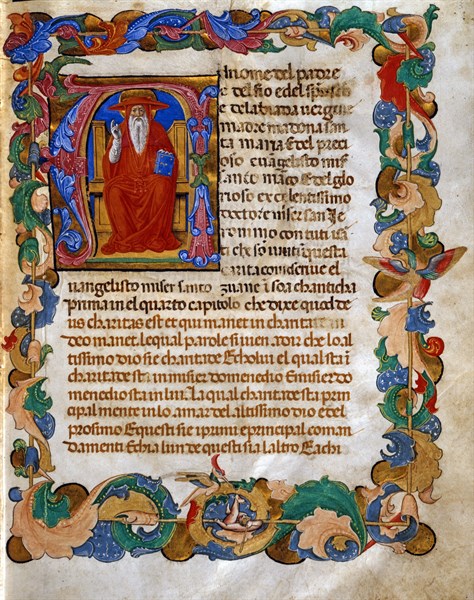 Al nome del padre
e del fio e del spirito
e dela biada vergene
madre madona san
ta maria E del preci
oso evangelisto mis
santo marco E del glo
rioso excelentissimo
doctore miser san Je
ronimo con tuti i sa
ti che so uniti questa
carita como scrive el
vangelisto miser santo zuane in soa chanticha
prima in el quarto capitolo che dixe quod de
us charitas est et qui manet in charitate in
deo manet. le qual parole si ven a dir che lo al
tissimo dio sie charita de E cholui el qual sta in
charita de sta in miser domenedio E miser do
menedio sta in lui. la qual charita de sta prin
cipal mente in lo amar del altissimo dio e del
prosimo E questi sie i primi e principal coman
damenti E chia lun de questi sia laltro E achi